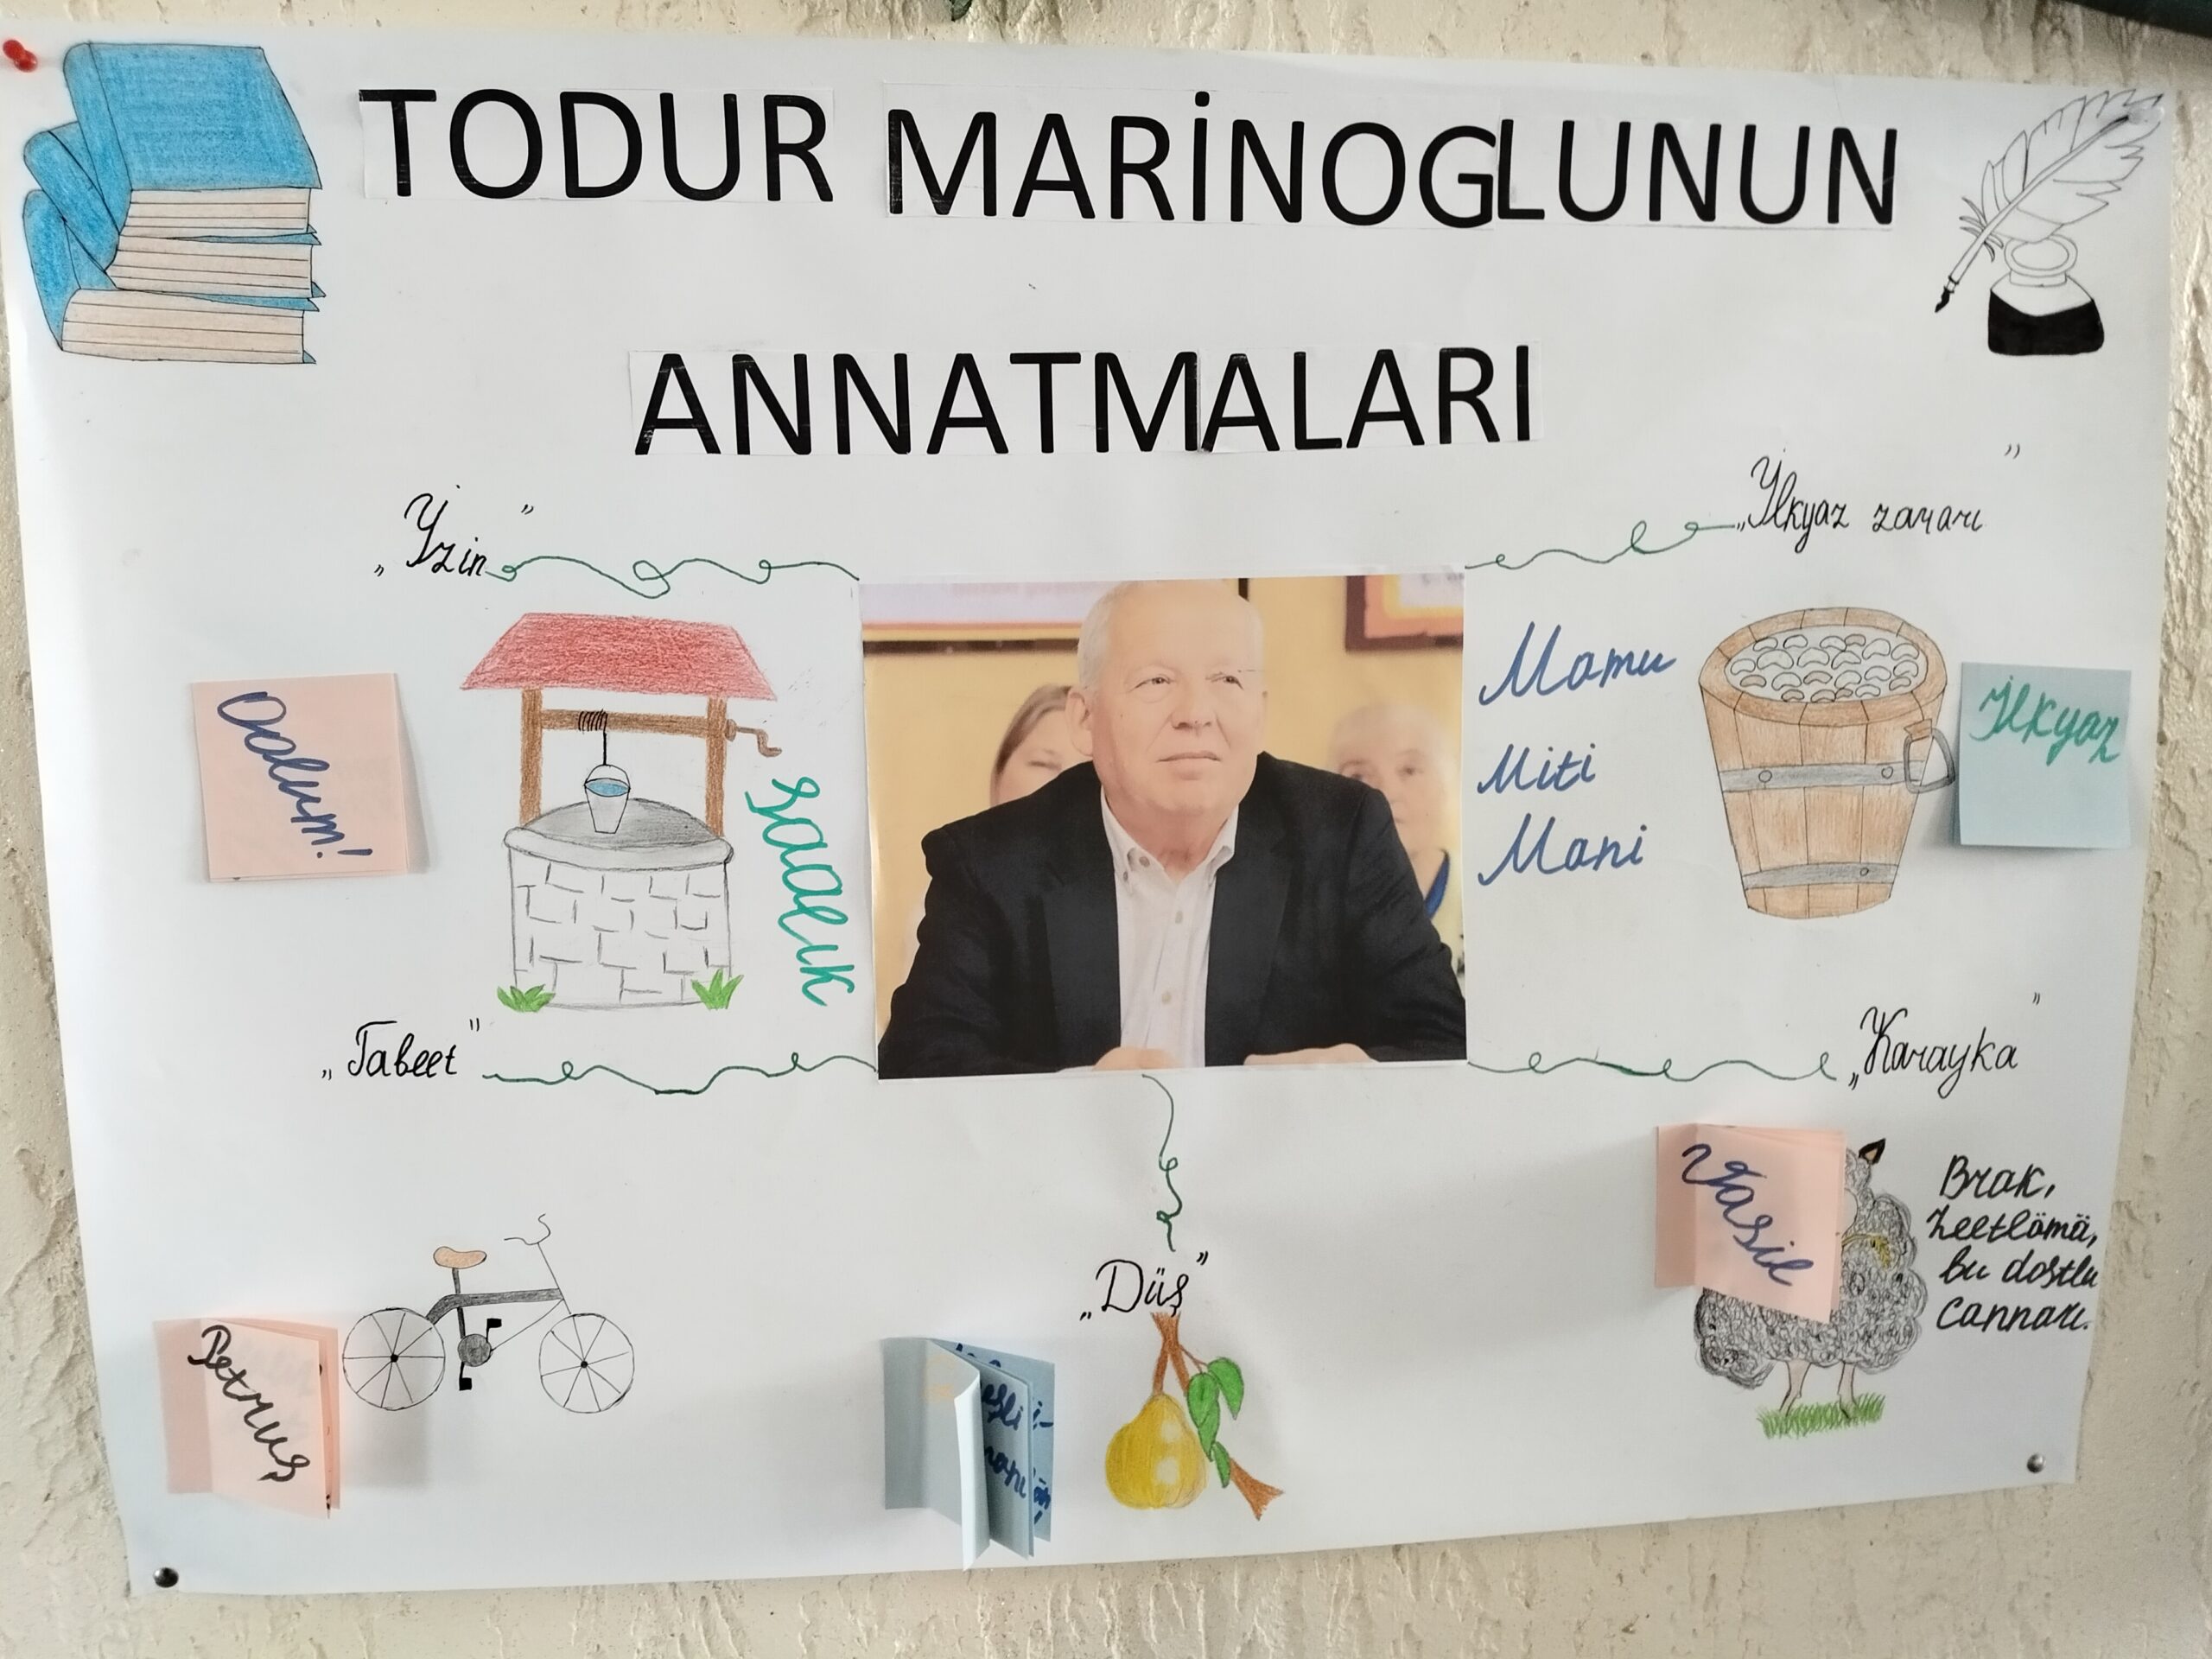 TODUR MARİNOGLUNUN
ANNATMALARI
„İzin”
„İlkyaz zararı”
Oolum!
Saalık
Mamu
Miti
Mani
İlkyaz
„Tabeet”
„Karayka”
Vasil
Brak,
zeetlämä,
bu dostlu
cannarı.
„Düş”
Petruş